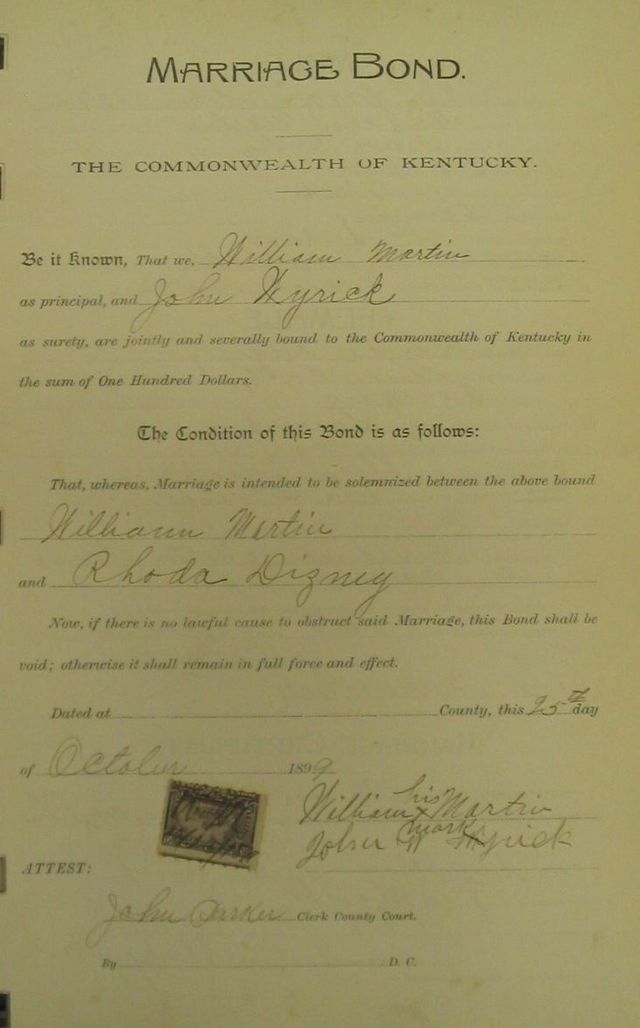 MARRIAGE BOND.
THE COMMONWEALTH OF KENTUCKY.
Be it Known, That we, William Martin
as principal, and John Wyrick
as surety, are jointly and severally bound to the Commonwealth of Kentucky in
the sum of One Hundred Dollars.
The Condition of this Bond is as follows:
That, whereas, Marriage is intended to be solemnized between the above bound
William Martin
and Rhoda Dizney
Now, if there is no lawful cause to obstruct said Marriage, this Bond shall be
void; otherwise it shall remain in full force and effect.
Dated at County, this 25th day
of October 1899
his
William X Martin
mark
John W Wyrick
ATTEST:
John Clerk County Court.
By D. C.